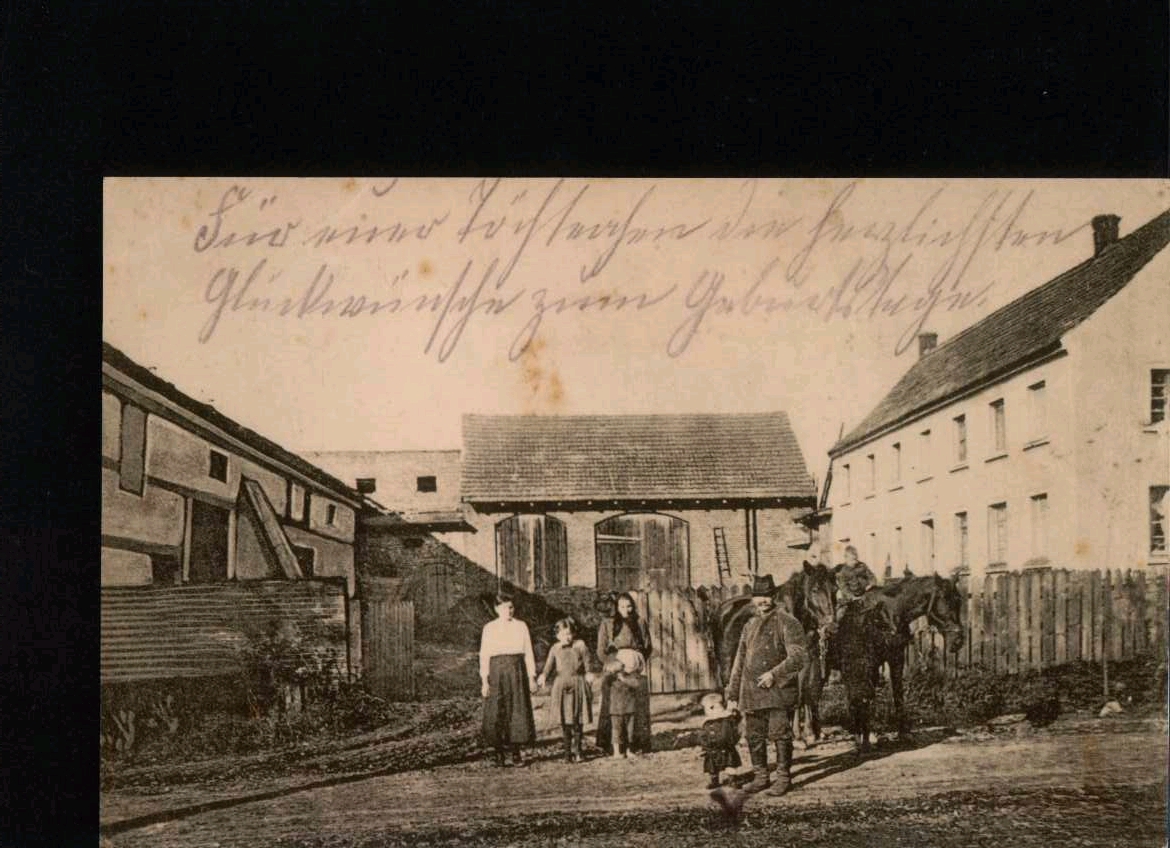 Für euer Töchterchen die herzlichsten
Glückwünsche zum Geburtstage.